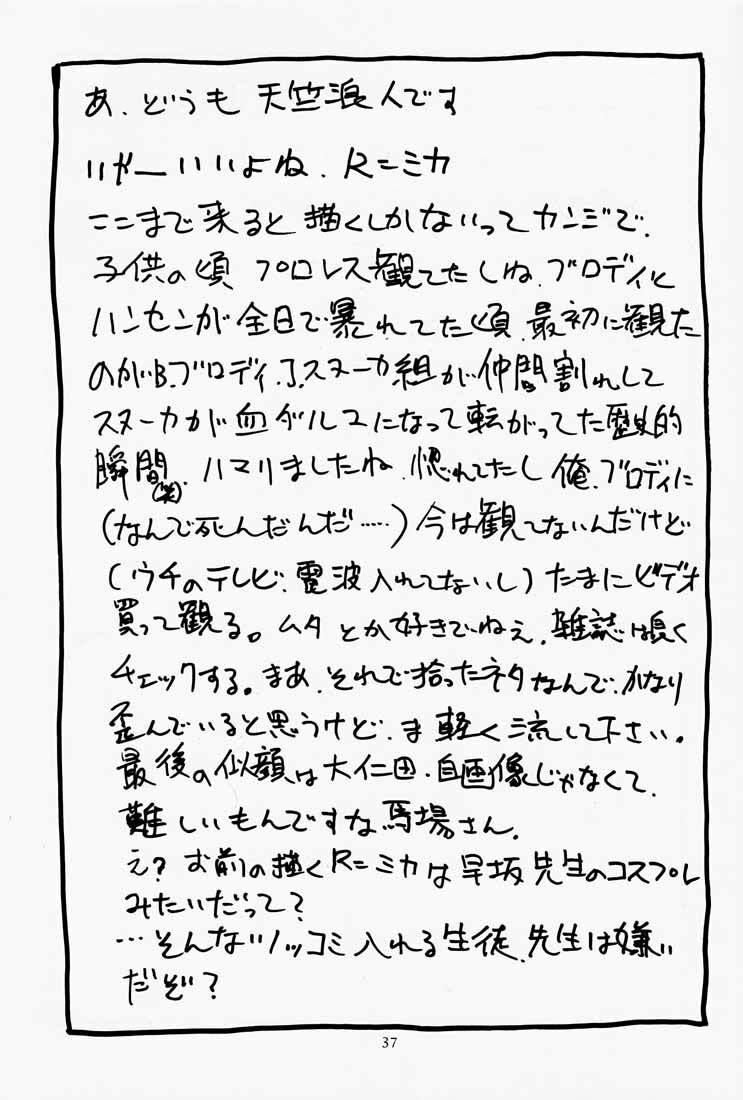 あ、どうも 天竺浪人です
いやーいいよね、R=ミカ
ここまで来ると描くしかないってカンジで、
子供の頃 プロレス観てたしね、ブロディと
ハンセンが全日で暴れてた頃、最初に観た
のがB.ブロディ、J.スヌーカ組が仲間割れして
スヌーカが血ダルマになって転がってた歴史的
瞬間、(笑) ハマりましたね、惚れてたし 俺、ブロディに
(なんで死んだんだ……) 今は観てないんだけど
(ウチのテレビ、電波入れてないし) たまにビデオ
買って観る。ムタとか好きでねえ、雑誌は良く
チェックする。まあ、それで拾ったネタなんで、かなり
歪んでいると思うけど、ま 軽く流して下さい。
最後の似顔は大仁田、自画像じゃなくて、
難しいもんですな馬場さん。
え? お前の描くR=ミカは早坂先生のコスプレ
みたいだって?
…そんなツッコミ入れる生徒、先生は嫌い
だぞ?
37